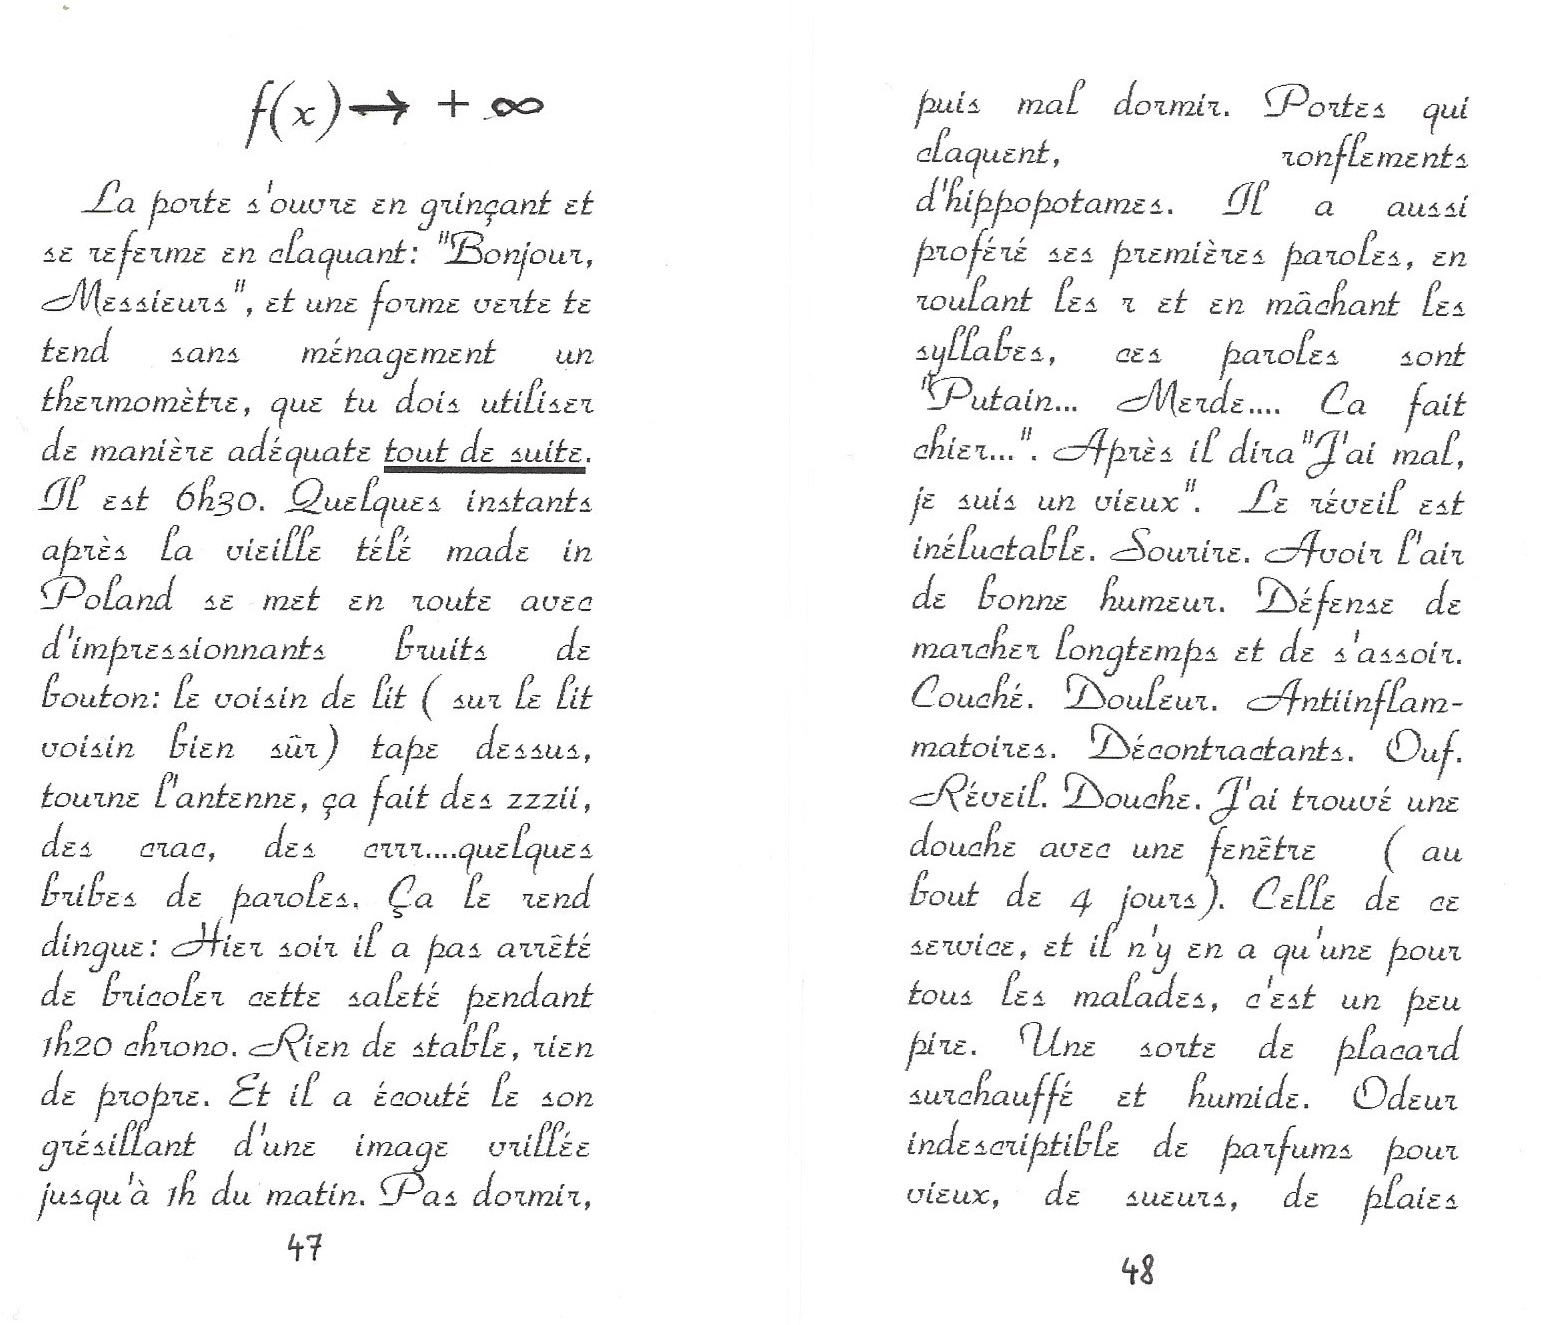 f(x)→ + ∞
La porte s'ouvre en grinçant et
se referme en claquant: "Bonjour,
Messieurs", et une forme verte te
tend sans ménagement un
thermomètre, que tu dois utiliser
de manière adéquate tout de suite.
Il est 6h30. Quelques instants
après la vieille télé made in
Poland se met en route avec
d'impressionnants bruits de
bouton: le voisin de lit ( sur le lit
voisin bien sûr) tape dessus,
tourne l'antenne, ça fait des zzzii,
des crac, des crrr....quelques
bribes de paroles. Ça le rend
dingue: Hier soir il a pas arrêté
de bricoler cette saleté pendant
1h20 chrono. Rien de stable, rien
de propre. Et il a écouté le son
grésillant d'une image vrillée
jusqu'à 1h du matin. Pas dormir,
47
puis mal dormir. Portes qui
claquent, ronflements
d'hippopotames. Il a aussi
proféré ses premières paroles, en
roulant les r et en mâchant les
syllabes, ces paroles sont
"Putain... Merde.... Ca fait
chier...". Après il dira"J'ai mal,
je suis un vieux". Le réveil est
inéluctable. Sourire. Avoir l'air
de bonne humeur. Défense de
marcher longtemps et de s'assoir.
Couché. Douleur. Antiinflam-
matoires. Décontractants. Ouf.
Réveil. Douche. J'ai trouvé une
douche avec une fenêtre ( au
bout de 4 jours). Celle de ce
service, et il n'y en a qu'une pour
tous les malades, c'est un peu
pire. Une sorte de placard
surchauffé et humide. Odeur
indescriptible de parfums pour
vieux, de sueurs, de plaies
48